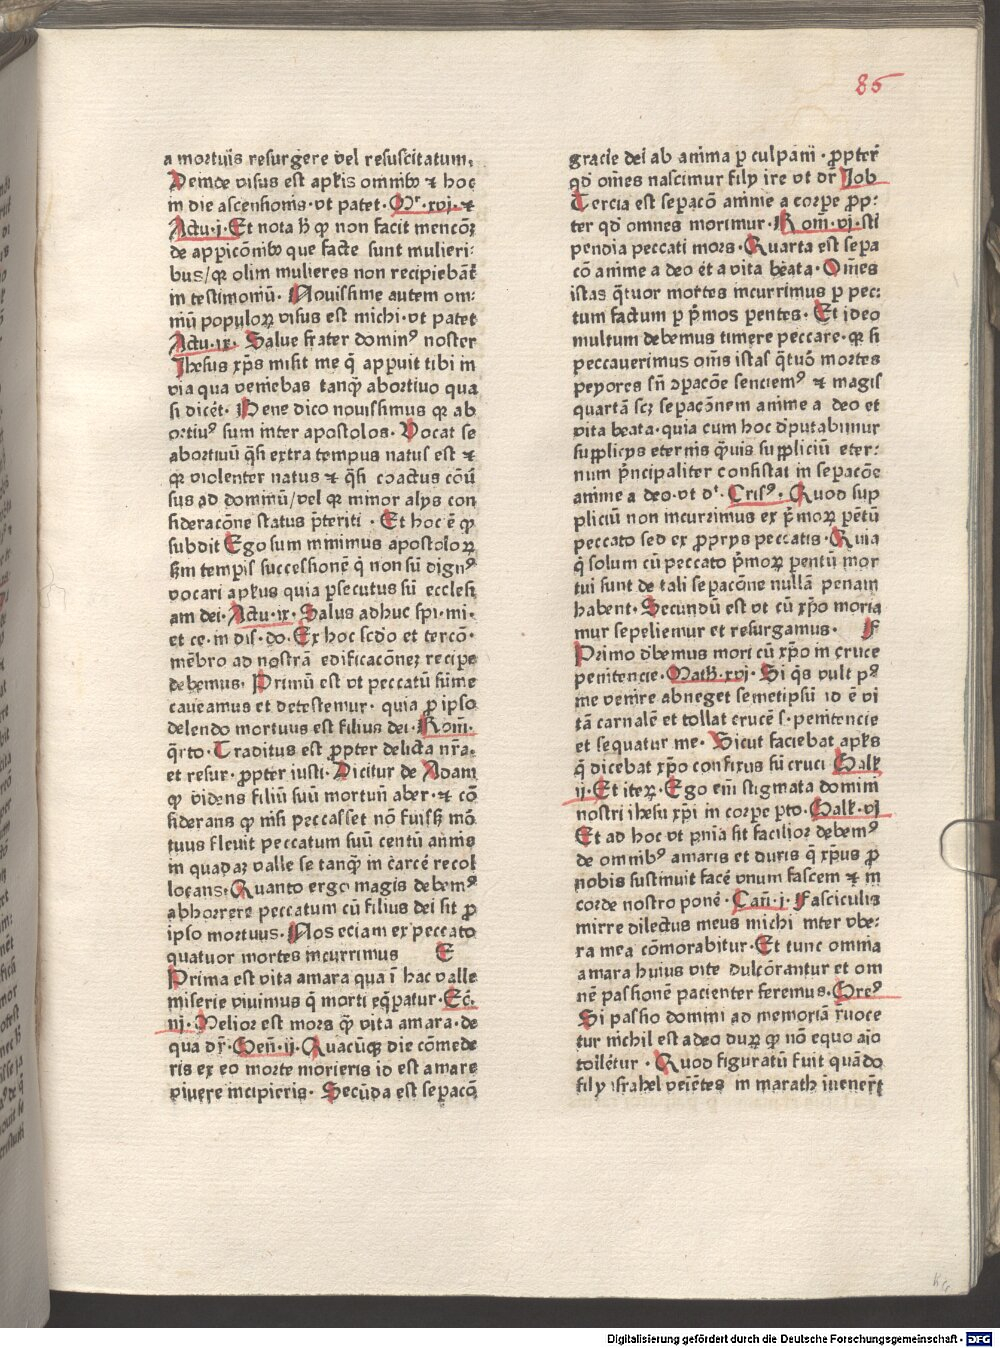 85
a mortuis resurgere vel resuscitatum.
Deinde visus est aplis omnibꝰ ⁊ hoc
in die ascensionis · vt patet · Mʳ. xvj · ⁊
Actu · j · Et nota ꝙ non facit mencōꝫ
de appicōnibꝰ que facte sunt mulieri⸗
bus/qꝛ olim mulieres non recipiebāt̄
in testimoniū · Nouissime autem om⸗
niū populoꝝ visus est michi · vt patet
Actu · ix · Salue frater dominꝰ noster
Jhesus xp̄s misit me q̄ appuit tibi in
via qua veniebas tanq̄ abortiuo qua
si dicēt · Bene dico nouissimus qꝛ ab
ortiuꝰ sum inter apostolos · Vocat se
abortiuū q̄si extra tempus natus est ⁊
qꝛ violenter natus ⁊ q̄si coactus cōū
sus ad dominū/vel qꝛ minor alijs con
sideracōne status p̄teriti · Et hoc ē ꝙ
subdit Ego sum minimus apostoloꝝ
scōm tempis successionē q̄ non sū dignꝰ
vocari aplus quia psecutus sū ecclesi
am dei · Actu · ix · Saulus adhuc spi · mi ·
et ce · in dis · do · Ex hoc scd̄o et tercō ·
mēbro ad nostrā edificacōneꝫ recipe
debemus · Primū est vt peccatū sūme
caueamus et detestemur · quia ꝓ ipso
delendo mortuus est filius dei · Rom̄ ·
q̄rto · Traditus est ꝓpter delicta nr̄a ·
et resur · ꝓpter iusti · Dicitur de Adam
ꝙ videns filiū suū mortuū abel · ⁊ cō
siderans ꝙ nisi peccasset nō fuisset mō
tuus fleuit peccatum suū centū annis
in quadaꝫ valle se tanq̄ in carcere recol
locans · Quanto ergo magis debemꝰ
abhorrere peccatum cū filius dei sit ꝓ
ipso mortuus · Nos eciam ex peccato
quatuor mortes incurrimus E
Prima est vita amara qua ī hac valle
miserie viuimus q̄ morti eq̄patur · Ec̄.
iij · Melior est mors q̄ vita amara · de
qua dr̄ · Gen̄ · ij · Quacūqꝫ die cōmede
ris ex eo morte morieris id est amare
viuere incipieris · Secūda est sepacō
gracie dei ab anima p culpam · ꝓpter
qd̄ om̄es nascimur filij ire vt dr̄ Job
Tercia est sepacō anime a corpe ꝓp⸗
ter qd̄ omnes morimur · Rom̄ · vj · sti
pendia peccati mors · Quarta est sepa
cō anime a deo et a vita beata · Om̄es
istas q̄tuor mortes incurrimus p pec⸗
tum factum p p̄mos pentes · Et ideo
multum debemus timere peccare · qꝛ si
peccauerimus om̄s istas q̄tuō mortes
peyores sn̄ ꝯpacōe senciemꝰ ⁊ magis
quartā scꝫ sepacōnem anime a deo et
vita beata · quia cum hoc dputabimur
supplicijs eternis q̄uis suppliciū eter⸗
num p̄ncipaliter consistat in sepacōe
anime a deo · vt dʳ · Crisꝰ · Quod sup
pliciū non incurrimus ex p̄moꝝ pētū
peccato sed ex ꝓprijs peccatis · Quia
q̄ solum cū peccato p̄moꝝ pentū mor
tui sunt de tali sepacōne nullā penam
habent · Secundū est vt cū xp̄o moria
mur sepeliemur et resurgamus · F
Primo dbemus mori cū xp̄o in cruce
penitencie · Math · xvj · Si q̄s vult pꝰ
me venire abneget semetipsū id ē vi
tā carnalē et tollat crucē s · penitencie
et sequatur me · Sicut faciebat apls
q̄ dicebat xp̄o confixus sū cruci Galꝛ
ij · Et iteꝝ · Ego eni stigmata domini
nostri ihesu xp̄i in corpe pto · Galꝛ · vj
Et ad hoc vt pn̄ia sit facilior debemꝰ
de omnibꝰ amaris et duris q̄ xp̄us ꝓ
nobis sustinuit facē vnum fascem ⁊ in
corde nostro ponē · Can̄ · j · Fasciculus
mirre dilectus meus michi inter vbe⸗
ra mea cōmorabitur · Et tunc omnia
amara huius vite dulcōrantur et om
nē passionē pacienter feremus · Greꝰ
Si passio domini ad memoriā r̄uoce
tur nichil est adeo duꝝ ꝙ nō equo aīo
tollētur · Quod figuratū fuit quādo
filij israhel veiētes in marath inuenerūt
Digitalisierung gefördert durch die Deutsche Forschungsgemeinschaft · DFG